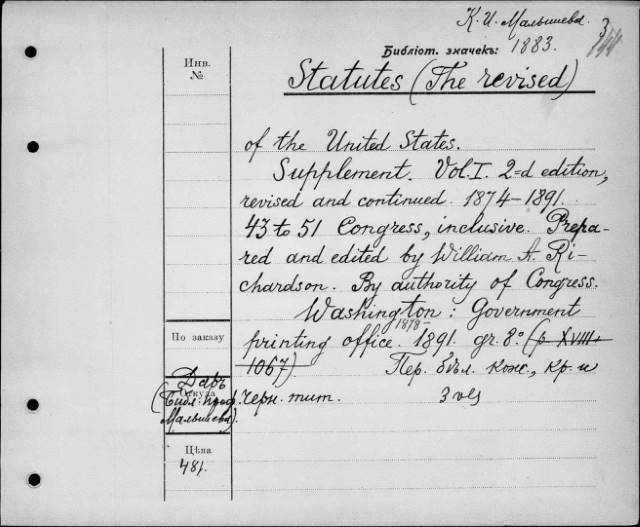 К. И. Малышева. 3
Библіот. значекъ: 1883. 144
Инв.
№
Statutes (The revised)
of the United States.
Supplement. Vol. I. 2=d edition,
revised and continued. 1874-1891.
43 to 51 Congress, inclusive. Prepa-
red and edited by William A. Ri-
chardson. By authority of Congress.
Washington: Government
1878-
По заказу printing office. 1891. gr. 8° (p XVIII+
1067). Пер. бѣл. кож., кр. и
Даръ
Откуда
(Библ. проф. черн. тит. 3 vls
Малышева).
Цѣна